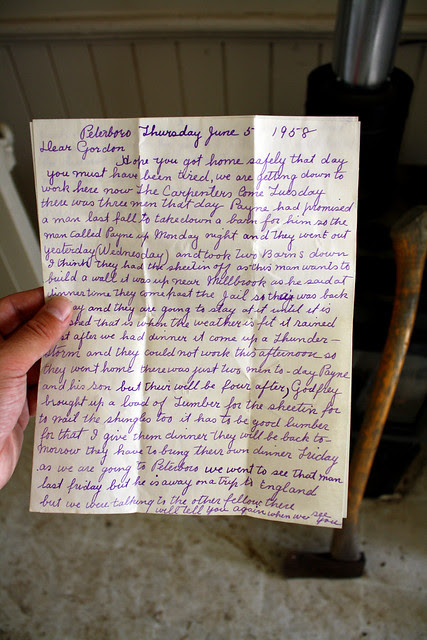 Peterboro Thursday June 5 1958
Dear Gordon
Hope you got home safely that day
you must have been tired, we are getting down to
work here now The Carpenters Come Tuesday
there was three men that day Payne had promised
a man last fall to takedown a barn for him so the
man called Payne up Monday night and they went out
yesterday (Wednesday) and took Two Barns down
I think they had the sheetin off as this man wants to
build a well it was up near Millbrook as he said at
dinner time they come past the Jail so they was back
ay and they are going to stay at it until it is
shed that is when the weather is fit it rained
t after we had dinner it come up a Thunder-
storm and they could not work this afternoon so
they went home there was just two men to-day Payne
and his son but their will be four after, Godfrey
brought up a load of Lumber for the sheetin for
to nail the shingles too it has to be good lumber
for that I give them dinner They will be back to-
morrow they have to bring their own dinner Friday
as we are going to Peterboro we went to see that man
last friday but he is away on a trip to England
but we were talking to the other fellow there
will tell you again when we see
you